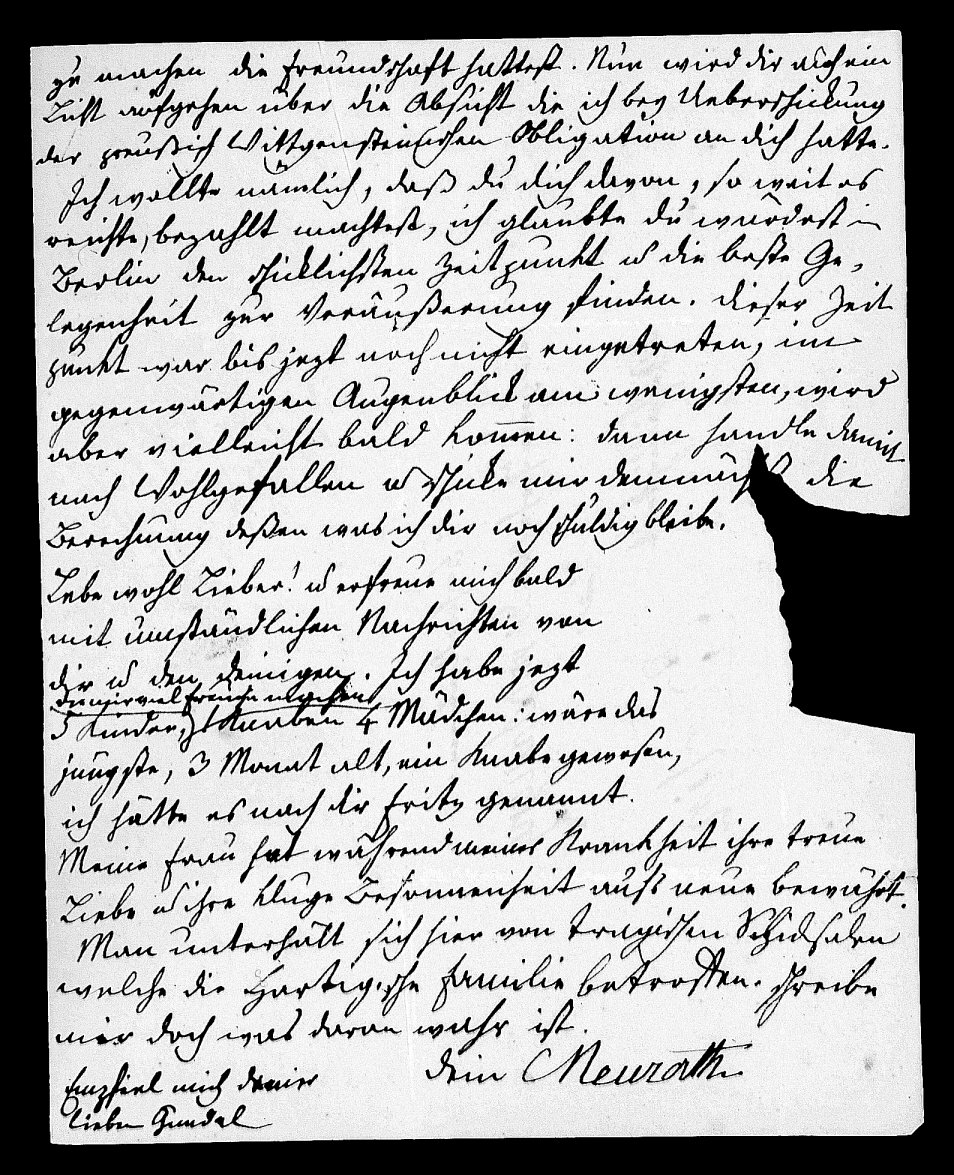 zu machen die Freundschaft hattest. Nun wird dir auch ein
Licht aufgehen über die Absicht die ich bey Ueberschickung
der preußisch Wittgensteinschen Obligation an dich hatte.
Ich wollte nämlich, daß du dich davon, so weit es
reichte, bezahlt machtest, ich glaubte du würdest in
Berlin den schicklichsten Zeitpunkt u die beste Ge-
legenheit zur Veräußerung finden. Dieser Zeit
punkt war bis jezt noch nicht eingetreten, im
gegenwärtigen Augenblick am wenigsten, wird
aber vielleicht bald kommen: dann handle damit
nach Wohlgefallen u schicke mir demnächst die
Berechnung deßen was ich dir noch schuldig bleibe.
Lebe wohl Lieber! u erfreue mich bald
mit umständlichen Nachrichten von
dir u den deinigen. Ich habe jezt
die mir viel Freude machen
5 Kinder, 1 Knaben 4 Mädchen: wäre das
jüngste, 3 Monat alt, ein Knabe gewesen,
ich hätte es nach dir Fritz genannt.
Meine Frau hat während meiner Krankheit ihre treue
Liebe u ihre kluge Besonnenheit aufs neue bewährt.
Man unterhält sich hier von tragischen Schicksalen
welche die Hartigsche Familie betroffen. Schreibe
mir doch was daran wahr ist.
Dein CNeurath
Empfiel mich deiner
lieben Gundel